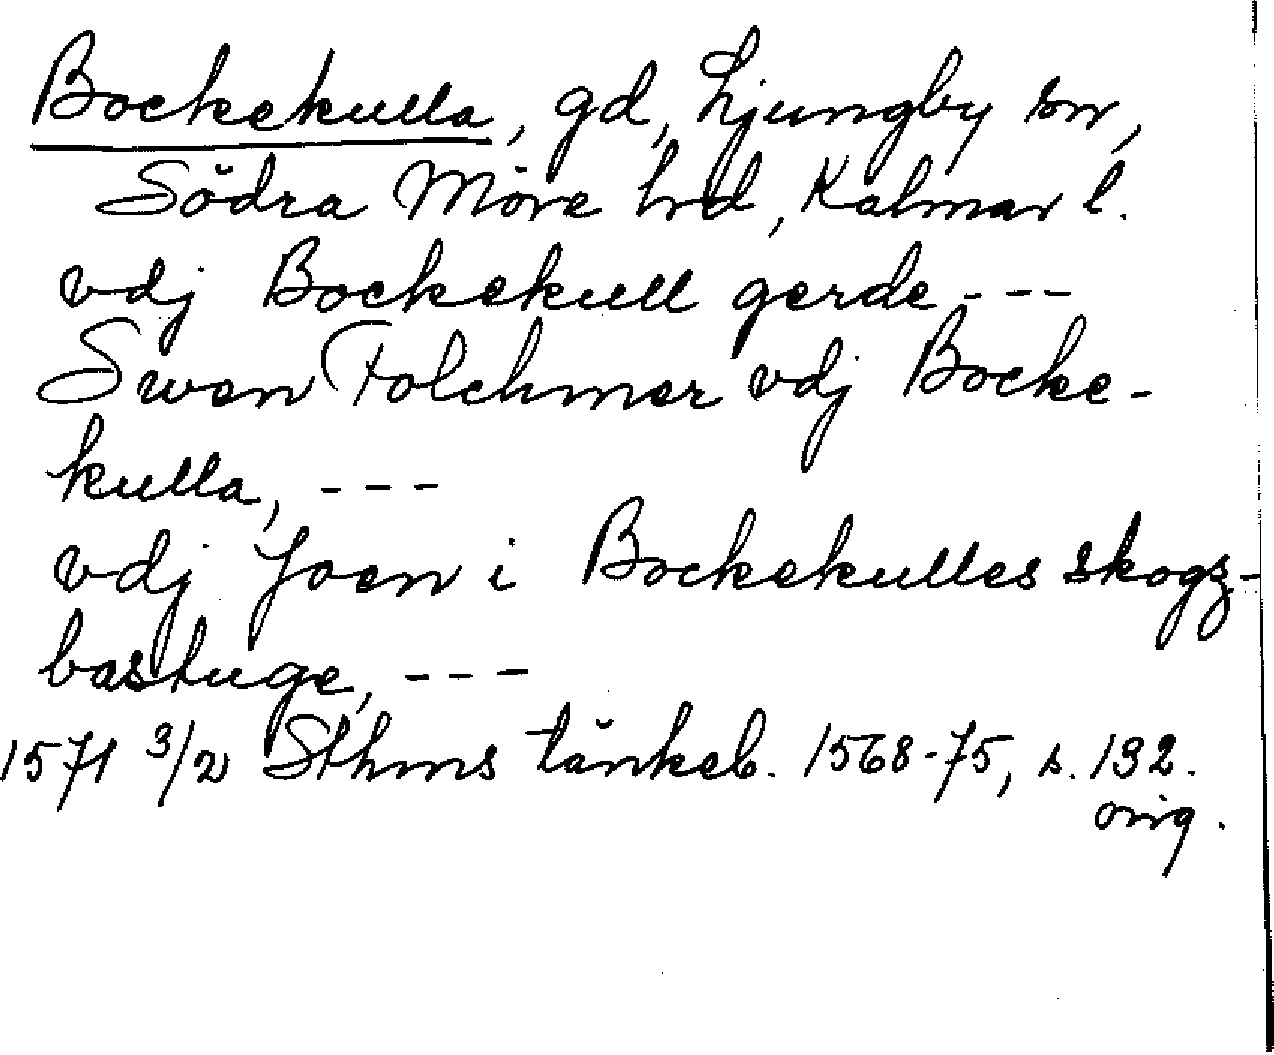 Bockekulla, gd, Ljungby sn,
Södra Möre hrd, Kalmar l.
vdj Bockekull gerde - - -
Swen Folchmer vdj Bocke-
kulla, - - -
vdj Joen i Bockekulles skogz-
bastuge, - - -
1571 3/2 Sthms tänkeb. 1568-75, s. 192.
orig.